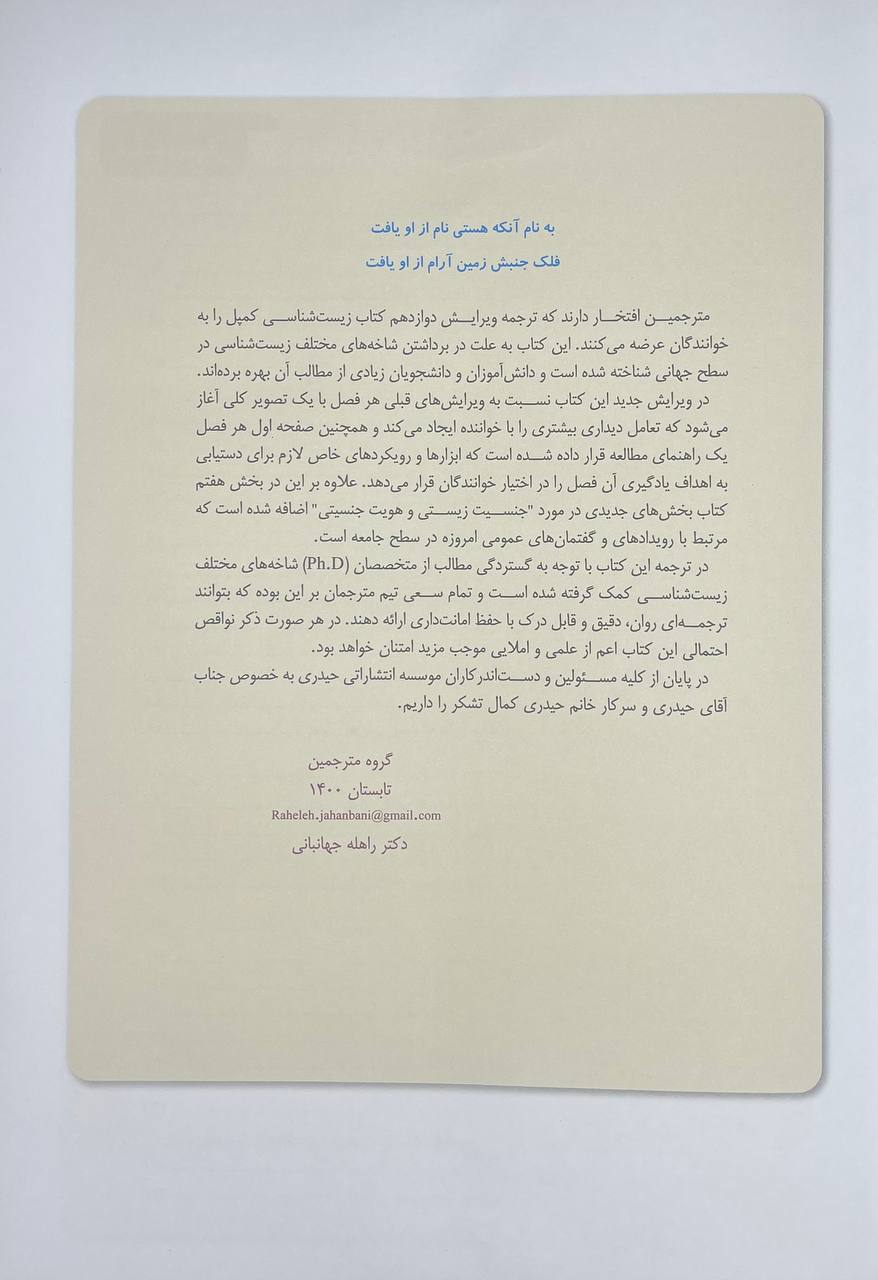 به نام آنکه هستی نام از او یافت
فلک جنبش زمین آرام از او یافت
مترجمین افتخار دارند که ترجمه ویرایش دوازدهم کتاب زیست‌شناسی کمپل را به
خوانندگان عرضه می‌کنند. این کتاب به علت در برداشتن شاخه‌های مختلف زیست‌شناسی در
سطح جهانی شناخته شده است و دانش‌آموزان و دانشجویان زیادی از مطالب آن بهره برده‌اند.
در ویرایش جدید این کتاب نسبت به ویرایش‌های قبلی هر فصل با یک تصویر کلی آغاز
می‌شود که تعامل دیداری بیشتری را با خواننده ایجاد می‌کند و همچنین صفحه اول هر فصل
یک راهنمای مطالعه قرار داده شده است که ابزارها و رویکردهای خاص لازم برای دستیابی
به اهداف یادگیری آن فصل را در اختیار خوانندگان قرار می‌دهد. علاوه بر این در بخش هفتم
کتاب بخش‌های جدیدی در مورد "جنسیت زیستی و هویت جنسیتی" اضافه شده است که
مرتبط با رویدادهای و گفتمان‌های عمومی امروزه در سطح جامعه است.
در ترجمه این کتاب با توجه به گستردگی مطالب از متخصصان (Ph.D) شاخه‌های مختلف
زیست‌شناسی کمک گرفته شده است و تمام سعی تیم مترجمان بر این بوده که بتوانند
ترجمه‌ای روان، دقیق و قابل درک با حفظ امانت‌داری ارائه دهند. در هر صورت ذکر نواقص
احتمالی این کتاب اعم از علمی و املایی موجب مزید امتنان خواهد بود.
در پایان از کلیه مسئولین و دست‌اندرکاران موسسه انتشاراتی حیدری به خصوص جناب
آقای حیدری و سرکار خانم حیدری کمال تشکر را داریم.
گروه مترجمین
تابستان ۱۴۰۰
Raheleh.jahanbani@gmail.com
دکتر راهله جهانبانی